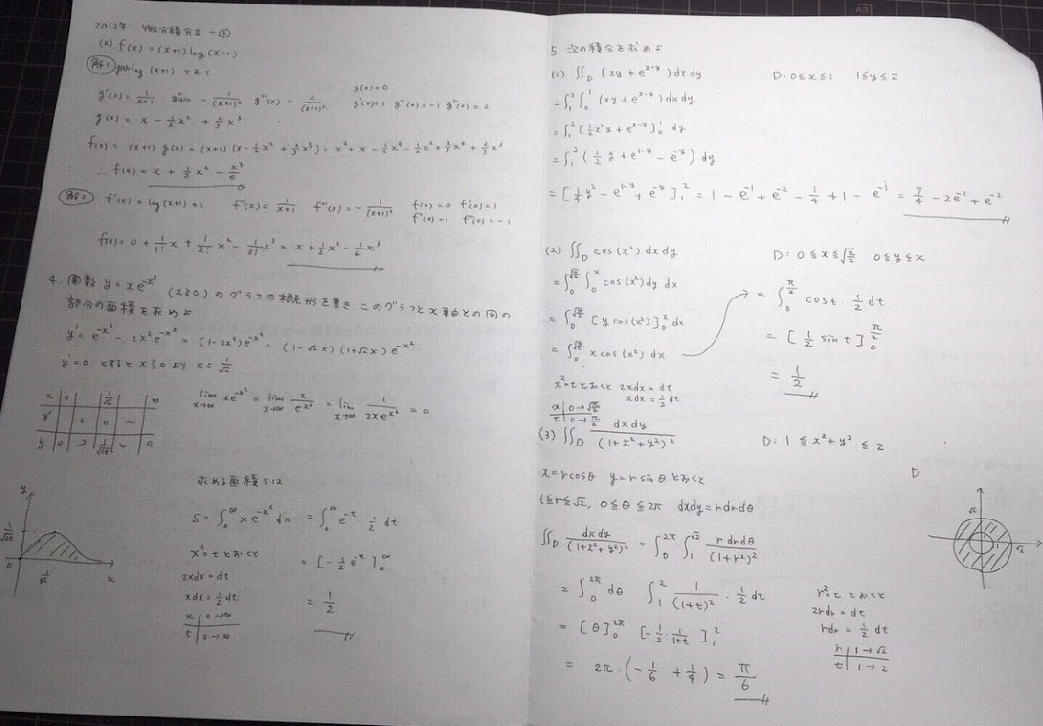 2012年 微分積分Ⅱ-⑤
(2) f(x) = (x+1) log (x+1)
解1 g(x)=log (x+1) とおく
g(0)=0
g'(x)= 1/(x+1) g''(x)= - 1/(x+1)² g'''(x) = 2/(x+1)³ g'(0)=1 g''(0)=-1 g'''(0)=2
g(x) = x - 1/2 x² + 2/3! x³
∴ f(x) = x + 1/2 x² - x³/6
解2 f'(x) = log(x+1) + 1 f''(x) = 1/(x+1) f'''(x) = - 1/(x+1)² f(0)=0 f'(0)=1
f''(0)=1 f'''(0)=-1
f(x) = 0 + 1/1! x + 1/2! x² - 1/3! x³ = x + 1/2 x² - 1/6 x³
4. 関数 y = xe^{-x²} (x≧0) のグラフの概形を書き、このグラフとx軸との間の
部分の面積を求めよ
y' = e^{-x²} - 2x²e^{-x²} = (1-2x²)e^{-x²} = (1-√2x)(1+√2x)e^{-x²}
y'=0 とすると x≧0 より x = 1/√2
x 0 1/√2 ∞
y' + 0 -
y 0 1/√2e 0
lim_{x→∞} xe^{-x²} = lim_{x→∞} x/e^{x²} = lim_{x→∞} 1/(2xe^{x²}) = 0
求める面積 Sは
S = ∫₀^∞ xe^{-x²} dx = ∫₀^∞ e^{-t} 1/2 dt
x²=t とおくと = [-1/2 e^{-t}]₀^∞
2xdx = dt
xdx = 1/2 dt = 1/2
x | 0→∞
t | 0→∞
y
1/√2e
0 1/√2 x
5 次の積分を求めよ
(1) ∬_D (xy + e^{x-y}) dx dy D: 0≦x≦1 1≦y≦2
= ∫₁² ∫₀¹ (xy + e^{x-y}) dx dy
= ∫₁² [1/2 x²y + e^{x-y}]₀¹ dy
= ∫₁² (1/2 y + e^{1-y} - e^{-y}) dy
= [1/4 y² - e^{1-y} + e^{-y}]₁² = 1 - e^{-1} + e^{-2} - 1/4 + 1 - e^{-1} = 7/4 - 2e^{-1} + e^{-2}
(2) ∬_D cos (x²) dx dy D: 0≦x≦√(π/2) 0≦y≦x
= ∫₀^{√(π/2)} ∫₀^x cos (x²) dy dx
= ∫₀^{√(π/2)} [y cos(x²)]₀^x dx
= ∫₀^{√(π/2)} x cos (x²) dx
= ∫₀^{π/2} cos t · 1/2 dt
= [1/2 sin t]₀^{π/2}
= 1/2
x²=t とおくと 2xdx = dt
xdx = 1/2 dt
x | 0→√(π/2)
t | 0→π/2
(3) ∬_D dxdy/(1+x²+y²)² D: 1≦x²+y²≦2
x = r cosθ y = r sinθ とおくと
1≦r≦√2, 0≦θ≦2π dxdy = rdrdθ
∬_D dxdy/(1+x²+y²)² = ∫₀^{2π} ∫₁^{√2} r drdθ/(1+r²)²
= ∫₀^{2π} dθ ∫₁² 1/(1+t)² · 1/2 dt
= [θ]₀^{2π} [-1/2 · 1/(1+t)]₁²
= 2π · (-1/6 + 1/4) = π/6
r²=t とおくと
2rdr = dt
rdr = 1/2 dt
r | 1→√2
t | 1→2
D
√2
√2